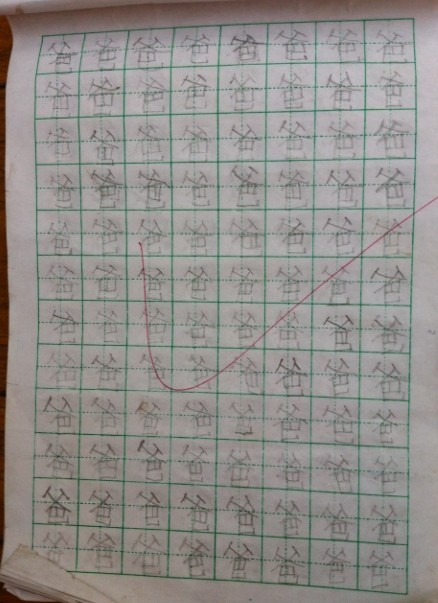 爸爸爸爸爸爸爸爸
爸爸爸爸爸爸爸爸
爸爸爸爸爸爸爸爸
爸爸爸爸爸爸爸爸
爸爸爸爸爸爸爸爸
爸爸爸爸爸爸爸爸
爸爸爸爸爸爸爸爸
爸爸爸爸爸爸爸爸
爸爸爸爸爸爸爸爸
爸爸爸爸爸爸爸爸
爸爸爸爸爸爸爸爸
爸爸爸爸爸爸爸爸